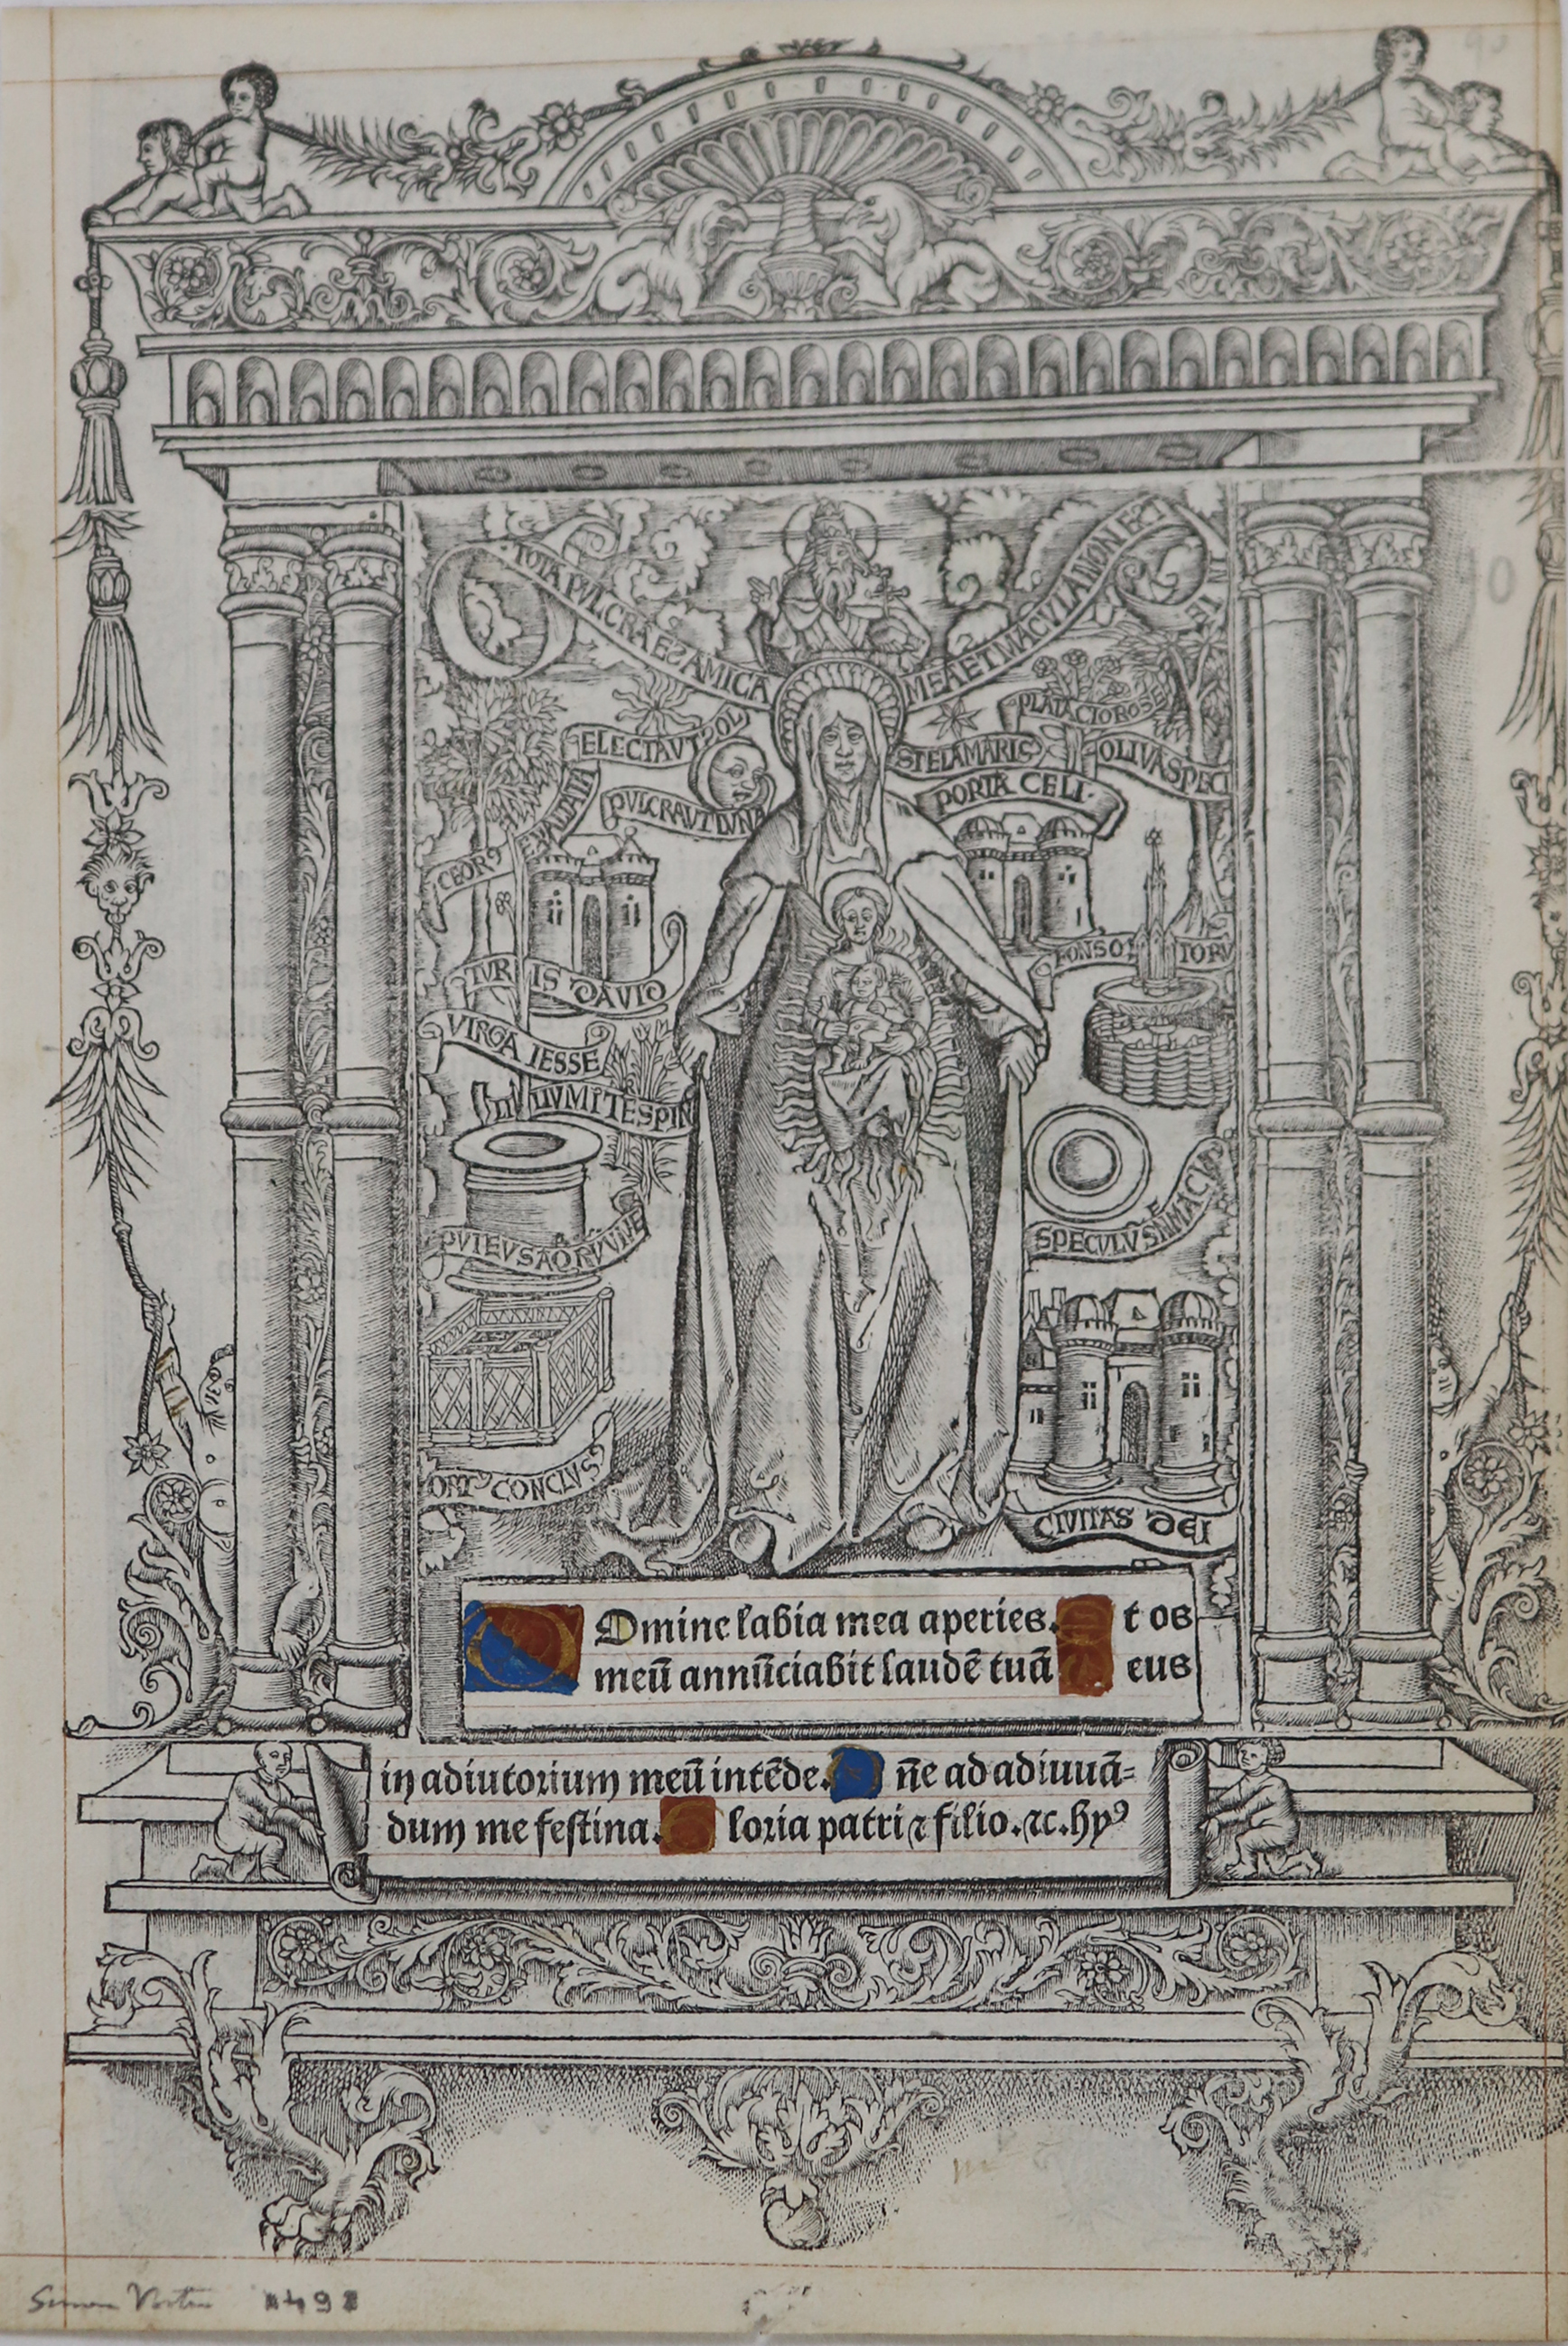 TOTA PVLCRA ES AMICA
MEA ET MACVLA NON EST
IN TE
ELECTA VT SOL
PVLCRA VT LVNA
STELA MARIS
PLATACIO ROSE
OLIVA SPECI
PORTA CELI
EXALTATA
TVRIS DAVID
FONS O TORV
VIRGA IESSE
LILIVM ĪTE SPIN
PVTEVS AQRV VIVE
SPECVLV SINE MACVL
ORTꝰ CONCLVSꝰ
CIVITAS DEI
Domine labia mea aperies. t os
meū annūciabit laudē tuā eus
in adiutorium meū intēde. ñe ad adiuuā=
dum me festina. loria patri ⁊ filio. ⁊c. hyꝰ